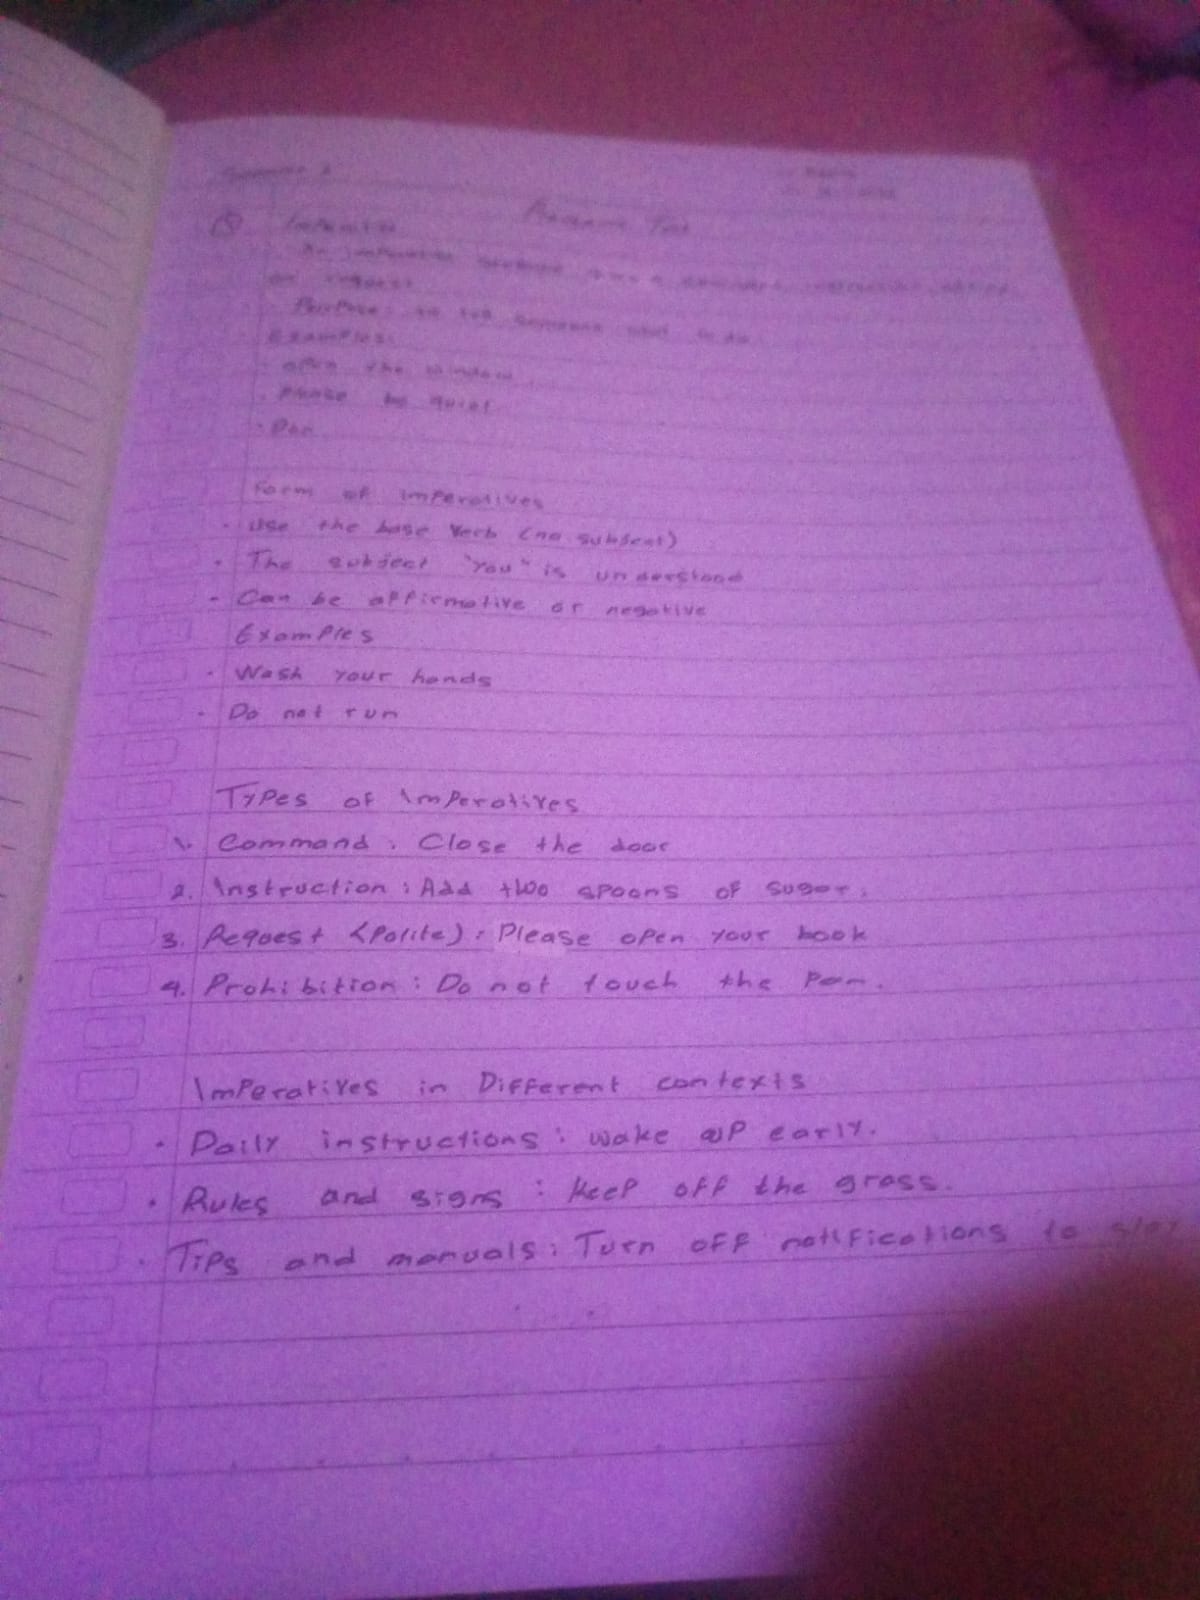 An imperative sentence gives a command, instruction, advice
or request
Purpose: to tell someone what to do
Examples:
open the window
Please be quiet
Form of imperatives
- Use the base Verb (no subject)
- The subject "You" is understood
- Can be affirmative or negative
Examples
- Wash your hands
- Do not run
Types of Imperatives
1. Command: Close the door
2. Instruction: Add two spoons of sugar.
3. Request (Polite): Please open your book
4. Prohibition: Do not touch the Pan.
Imperatives in Different contexts
- Daily instructions: wake up early.
- Rules and signs: Keep off the grass.
- Tips and manuals: Turn off notifications to stay